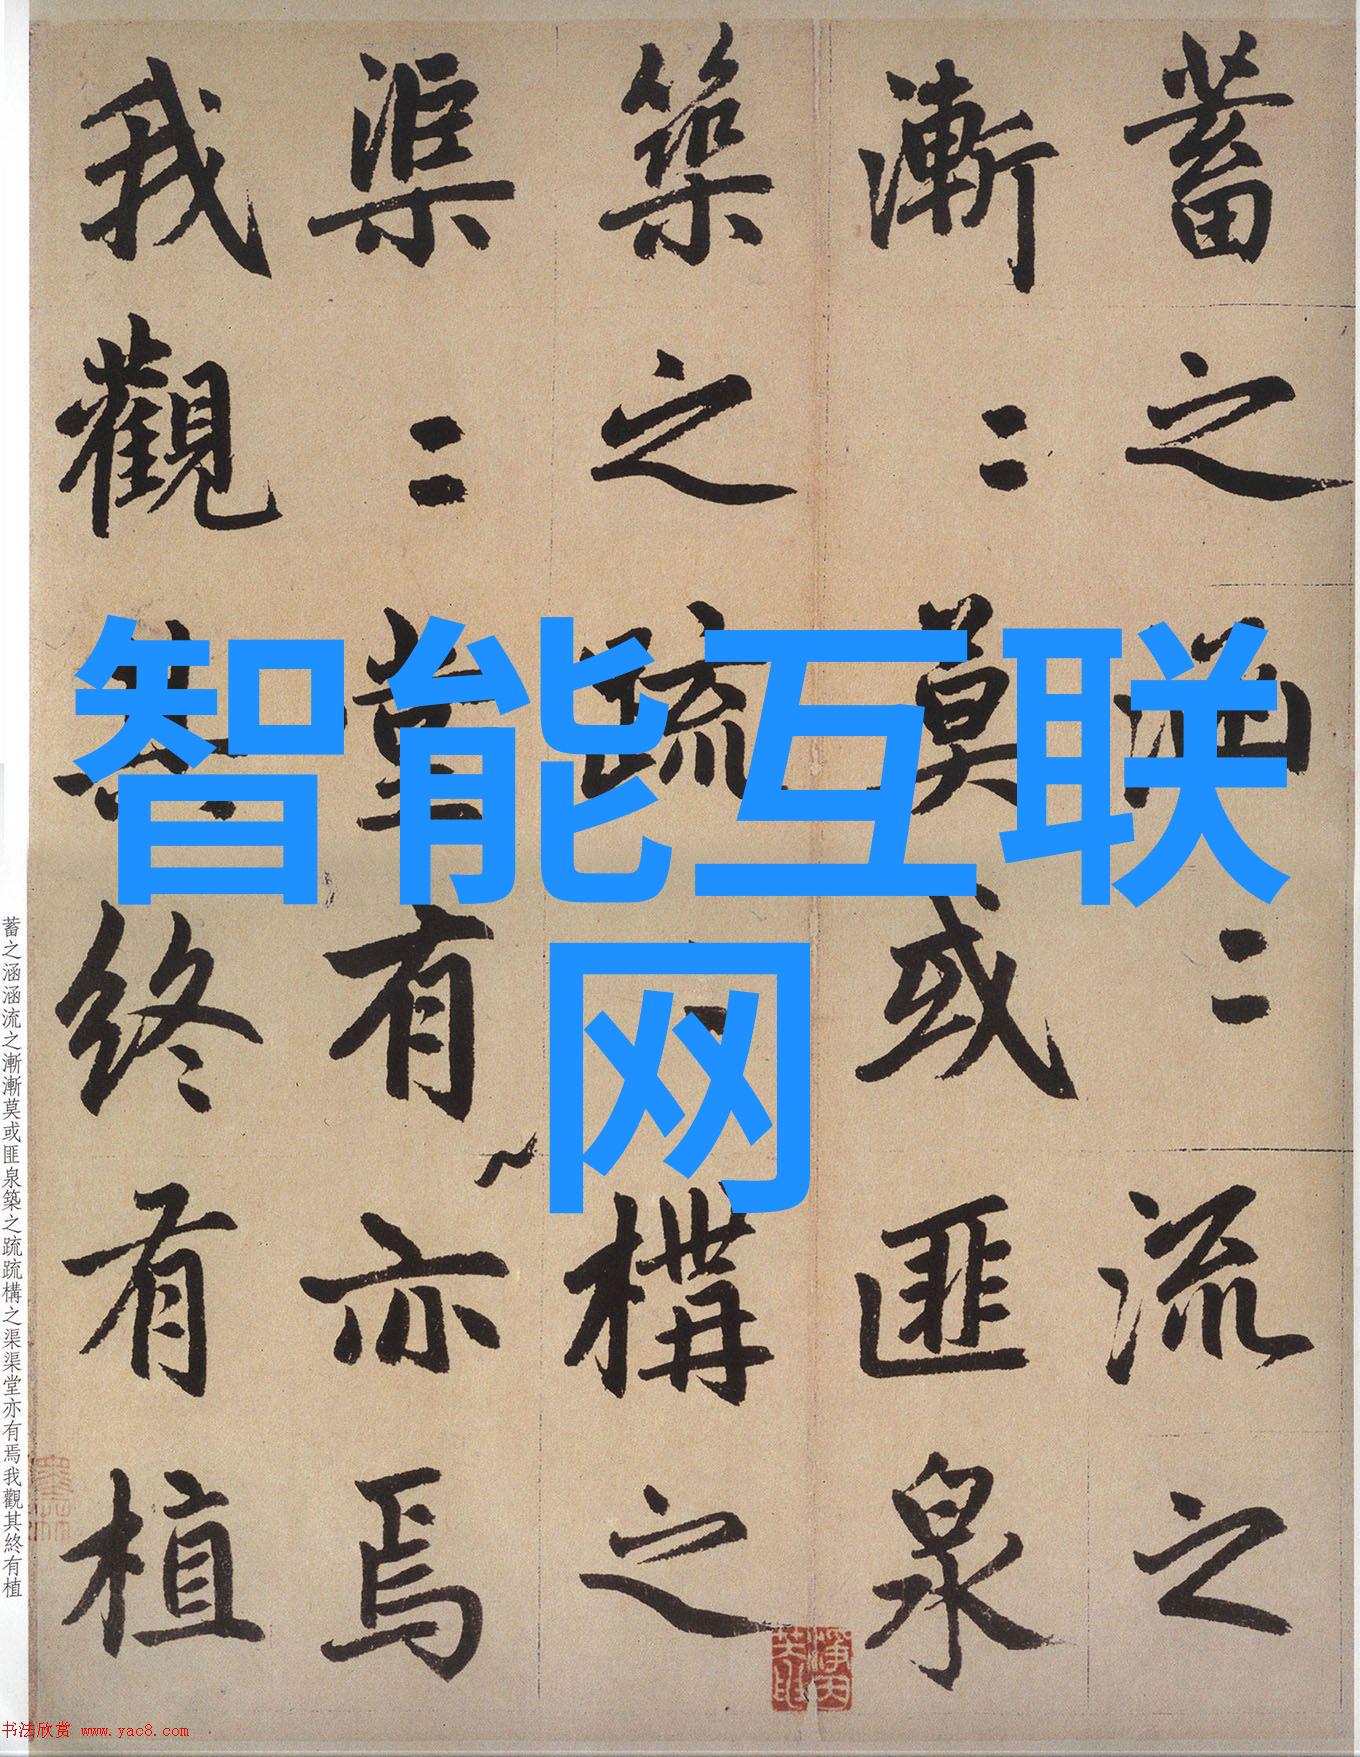 蓄之涵〻流之
漸〻莫或匪泉
築之疏〻構之
渠〻堂有亦焉
我觀其終有植
智能互联
网
蓄之涵涵流之漸漸莫或匪泉築之疏疏構之渠渠堂亦有焉我觀其終有植
书法欣赏 www.yac8.com